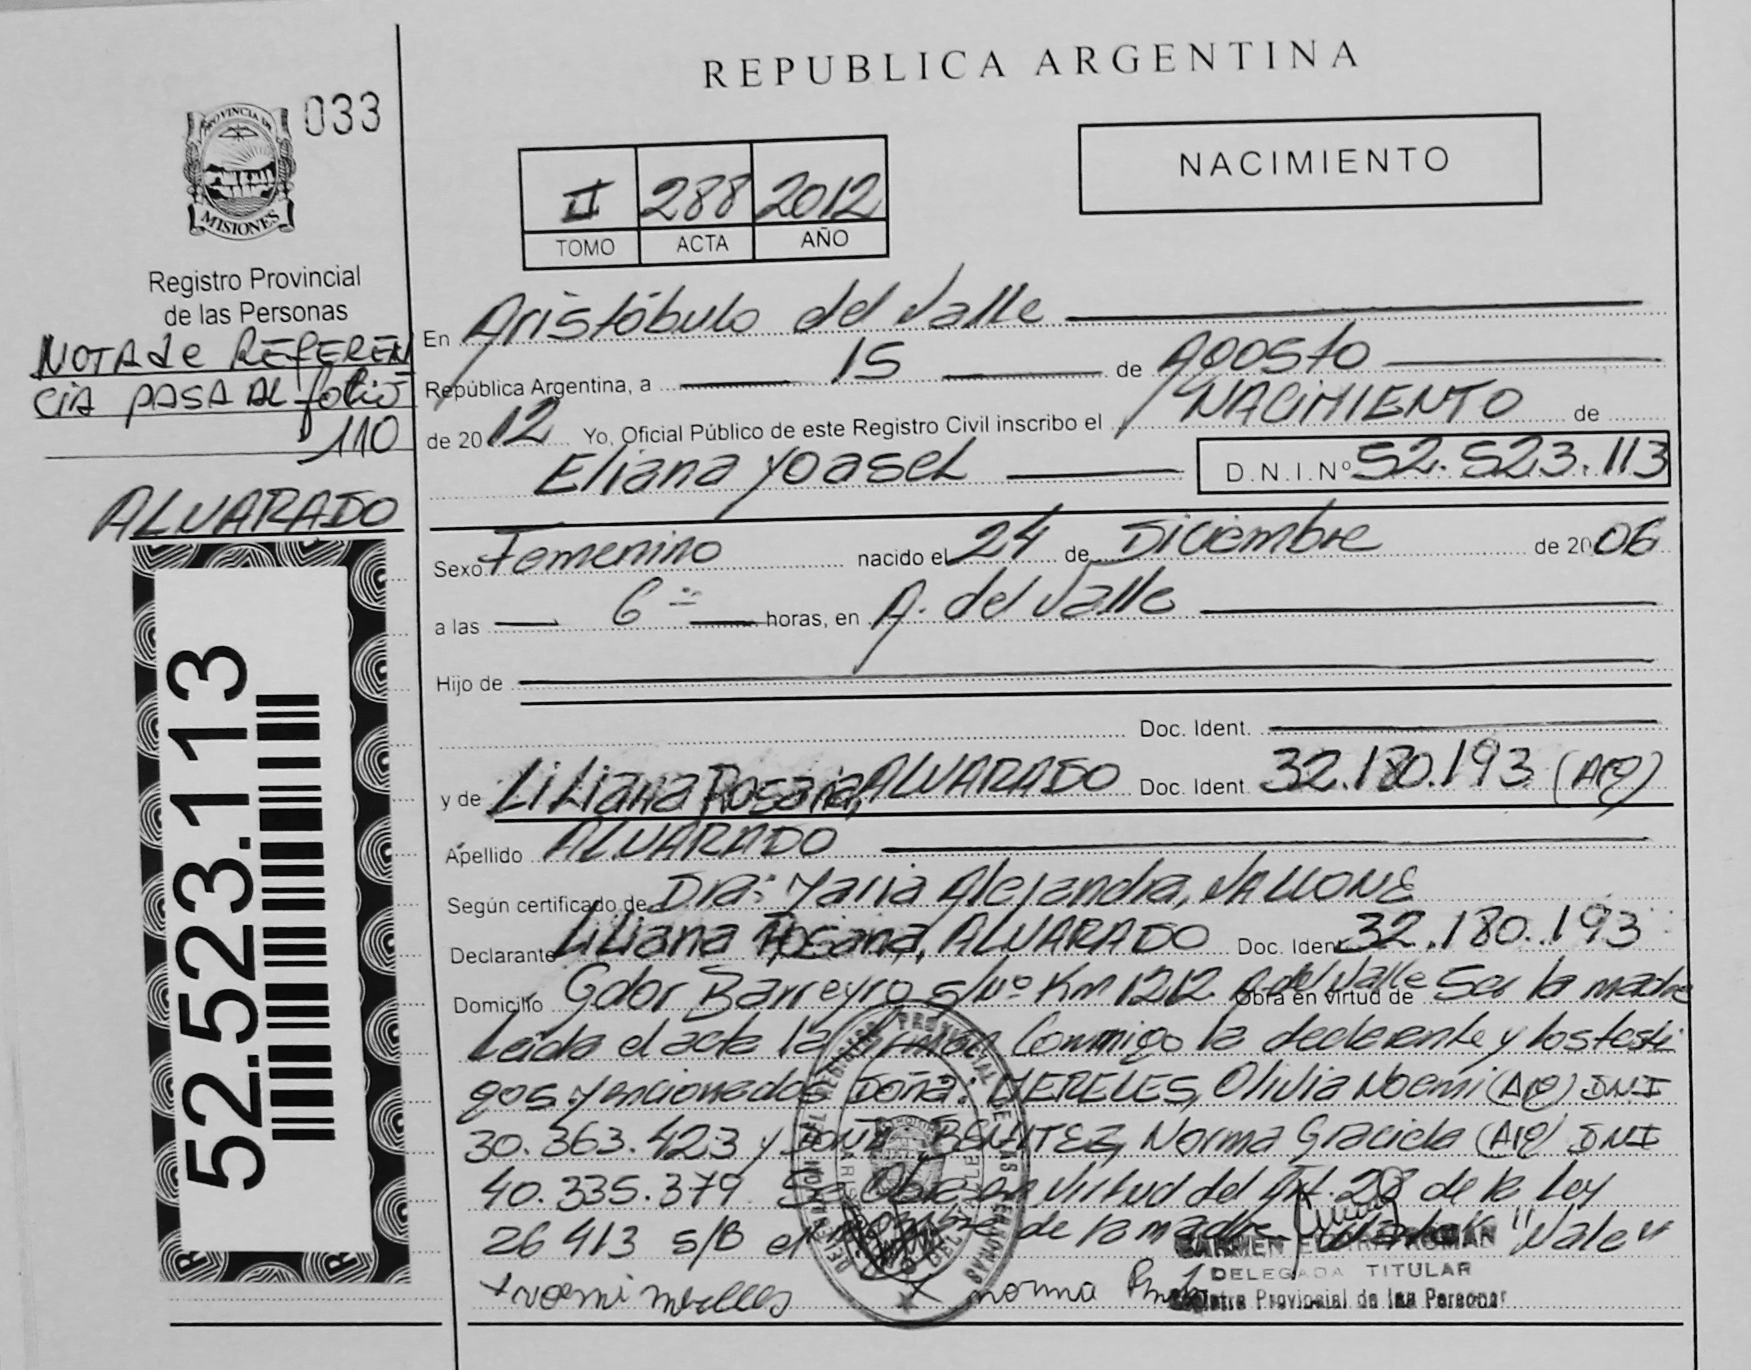 REPUBLICA ARGENTINA
033
PROVINCIA DE
MISIONES
Registro Provincial
de las Personas
NOTA de REFEREN
CIA PASA AL folio
110
ALVARADO
52.523.113
II 288 2012
TOMO ACTA AÑO
NACIMIENTO
En Aristóbulo del Valle
República Argentina, a 15 de Agosto
de 2012 Yo, Oficial Público de este Registro Civil inscribo el NACIMIENTO de
Eliana Yoasel D.N.I.Nº 52.523.113
Sexo Femenino nacido el 24 de Diciembre de 2006
a las 6 horas, en A. del Valle
Hijo de
Doc. Ident.
y de Liliana Rosana, ALVARADO Doc. Ident. 32.180.193
Apellido ALVARADO
Según certificado de Dra: Maria Alejandra, VALLONE
Declarante Liliana Rosana, ALVARADO Doc. Ident 32.180.193
Domicilio Gdor Barreyro s/nº Km 1212 A. del Valle Obra en virtud de Ser la madre
Leida el acta la firman Conmigo la declarante y los testi
gos mencionados Doña: MERELES, Olivia Noemi DNI
30.363.423 y Doña BENITEZ, Norma Graciela DNI
40.335.379. Se Obra en virtud del Art. 28 de la Ley
26413 s/B el nombre de la madre "Vale"
DELEGADA TITULAR
Registro Provincial de las Personas
Noemi mereles
norma